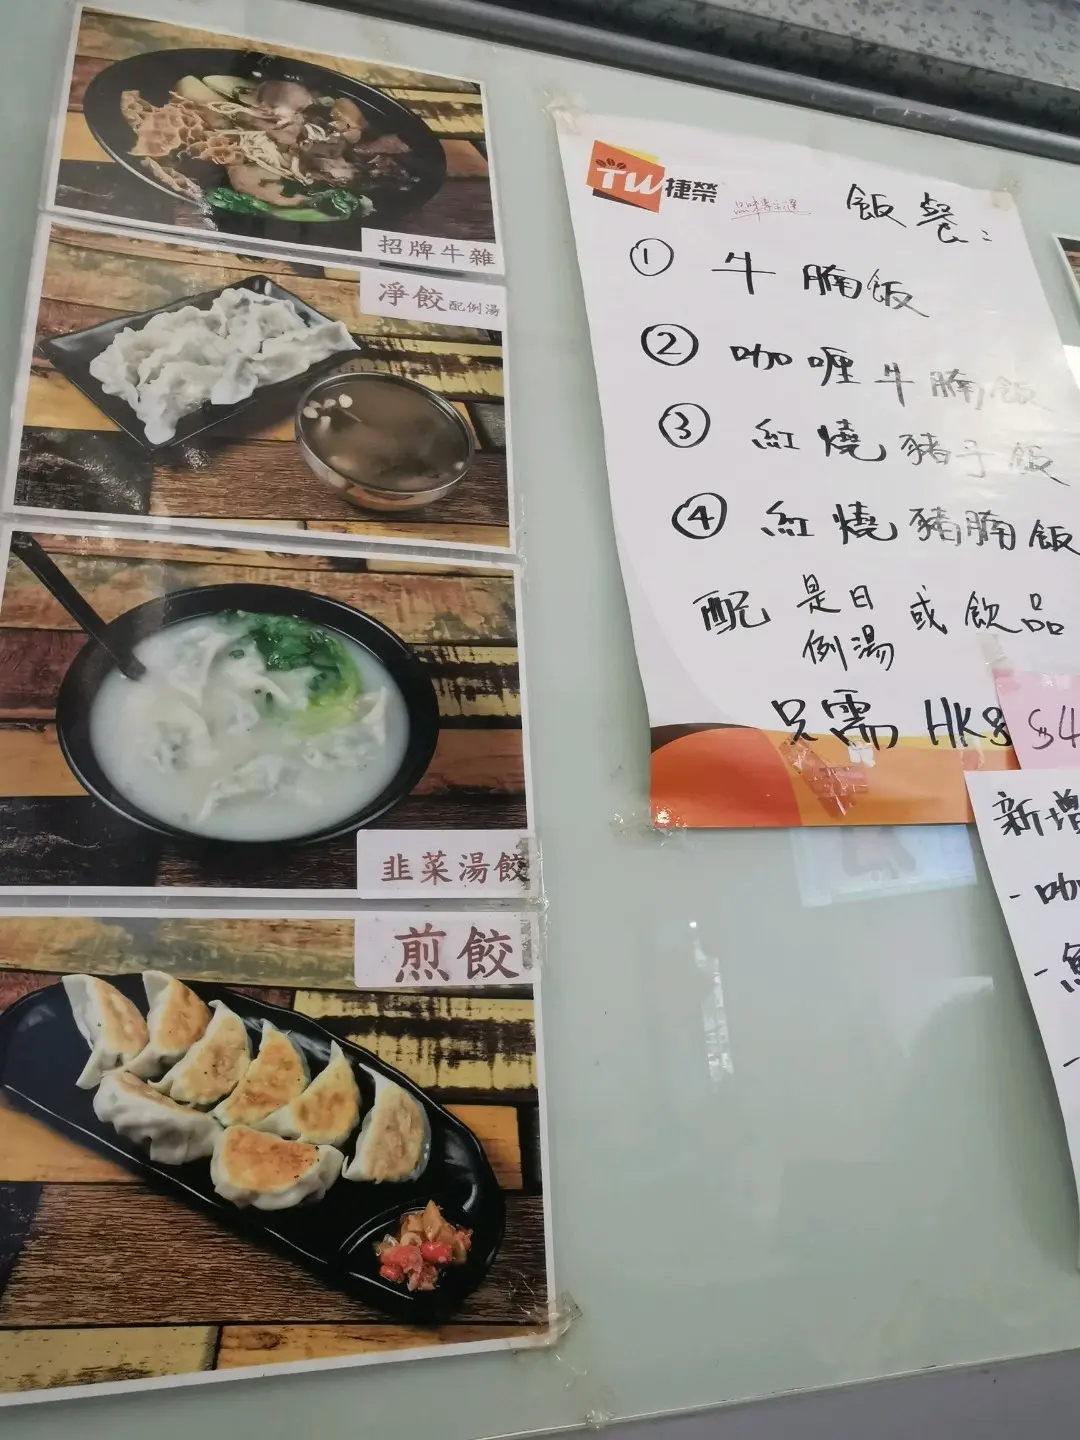 招牌牛雜
淨餃配例湯
韭菜湯餃
煎餃
TW捷榮
飯餐:
① 牛腩飯
② 咖喱牛腩飯
③ 紅燒豬手飯
④ 紅燒豬腩飯
配是日例湯或飲品
只需 HK$
$4
新增
- 咖
- 魚